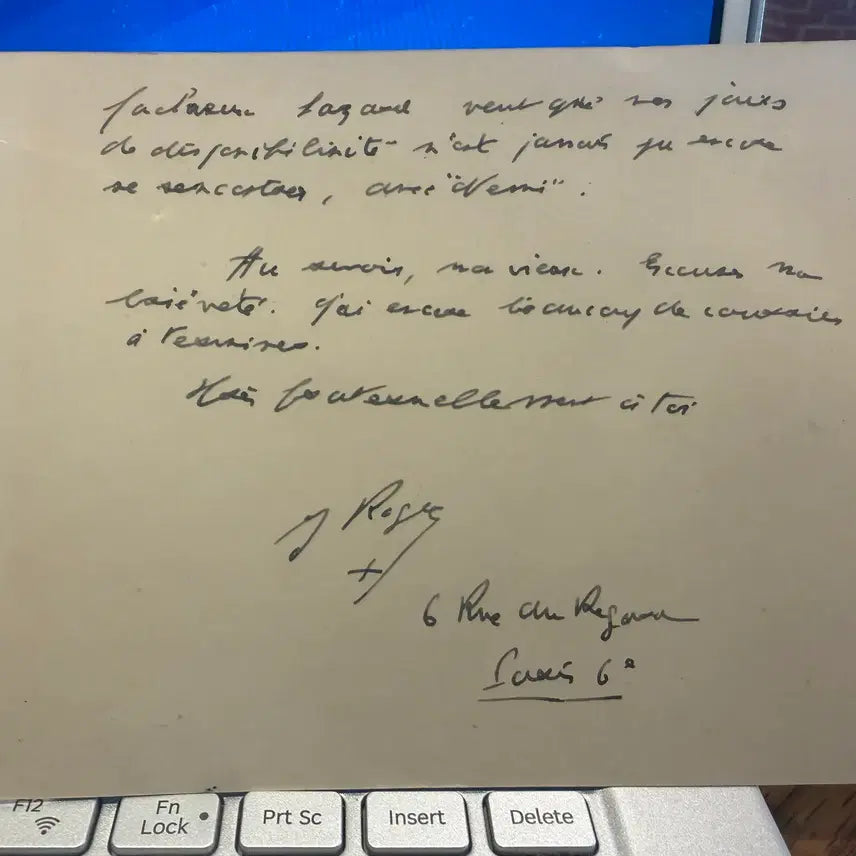 fâcheux hazard veut que nos jours
de disponibilité n'ait jamais pu encore
se rencontrer, avec "Remi".
Au revoir, mon vieux. Excuse ma
brièveté. J'ai encore beaucoup de courrier
à terminer.
Très fraternellement à toi
J Roger
+
6 Rue du Regard
Paris 6e
F12
Fn
Lock
Prt Sc
Insert
Delete